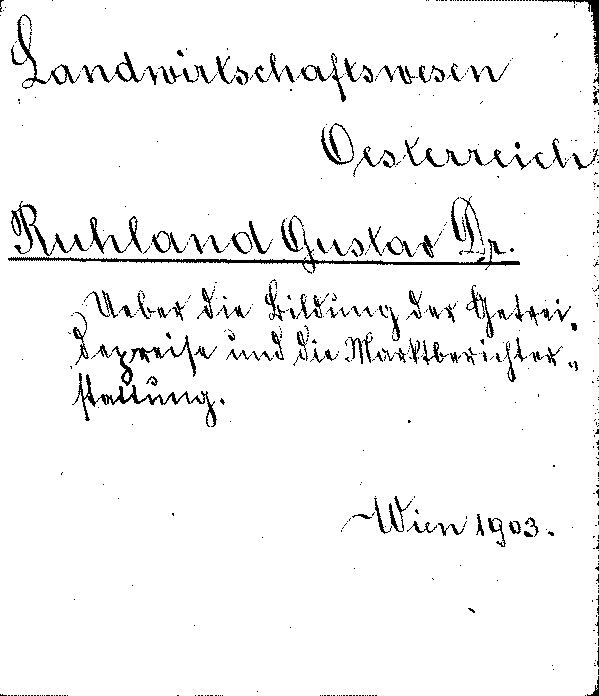 Landwirtschaftswesen
Oesterreich
Ruhland Gustav Dr.
Ueber die Bildung der Getrei-
depreise und die Marktberichter-
stattung.
Wien 1903.